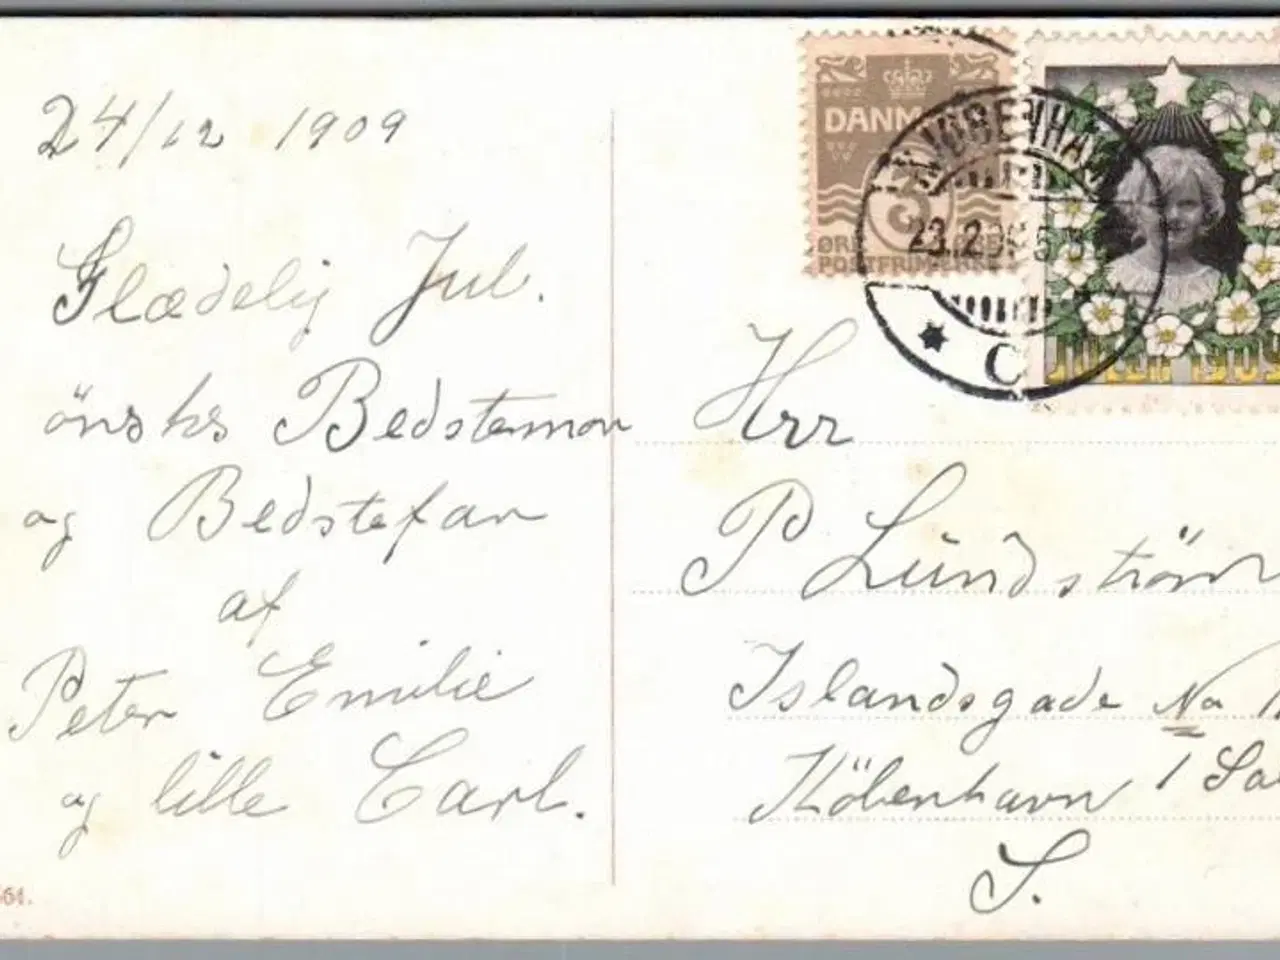 24/12 1909
Glædelig Jul.
önsks Bedstemor
og Bedstefar
af
Peter Emilie
og lille Carl.
564.
DANMARK
3
ØRE ØRE
POSTFRIMÆRKE
KJØBENHAVN
23.2
C
JULEN 1909
Hrr
P Lündström
Islandsgade No
Köbenhavn 1 Sal
S.